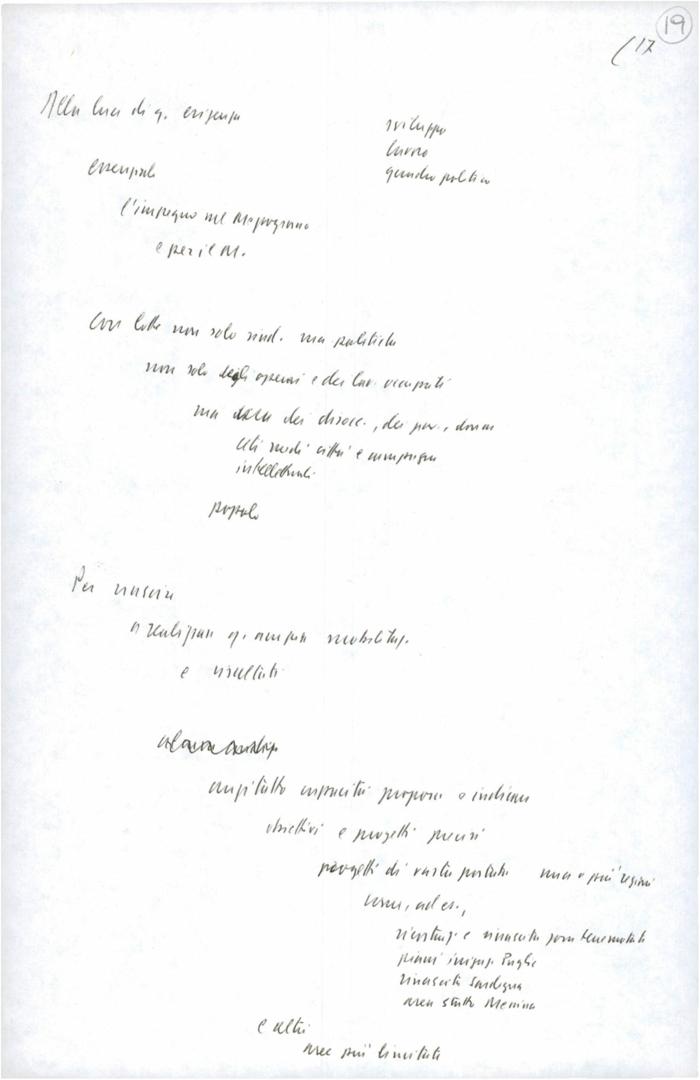 19
17
Alla luce di q. esigenze
sviluppo
lavoro
quadro politico
essenziale
l'impegno nel Mezzogiorno
e per il M.
Con lotte non solo sind. ma politiche
non solo degli operai e dei lav. occupati
ma dei disocc., dei giov., donne
ceti medi città e campagna
intellettuali
popolo
Per riuscire
a realizzare q. ampia mobilitaz.
e risultati
anzitutto capacità proporre e indicare
obiettivi e progetti precisi
progetti di vasta portata una o più regioni
come, ad es.,
ricostruz. e rinascita zone terremotate
piani irrigaz. Puglie
rinascita Sardegna
area stretto Messina
e altri
aree più limitate